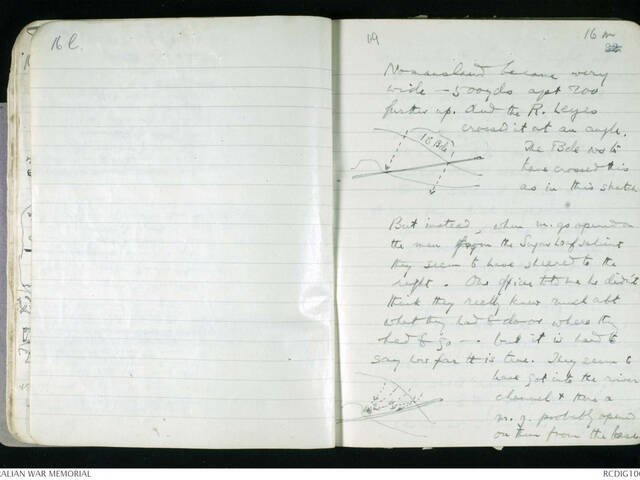 16 l.
19
16 m
22
Nomansland became very
wide - 500yds apt 200
further up. And the R. Leyes
crossed it at an angle.
16 Bde
The Bde was to
have crossed this
as in this sketch
But instead, when m.gs opened on
the men from the Sugarloaf salient
they seem to have sheered to the
right. One officer told me he didn't
think they really knew much abt
what they had to do or where they
had to go -. but it is hard to
say how far tt is true. They seem to
have got into the river
channel & there a
m.g. probably opened
on them from the
ALIAN WAR MEMORIAL
RCDIG100